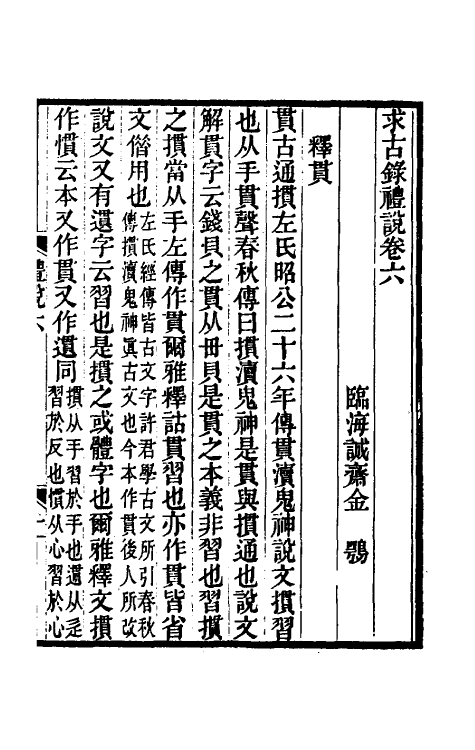 求古錄禮說卷六
臨海誠齋金 鶚
釋貫
貫古通摜左氏昭公二十六年傳貫瀆鬼神說文摜習
也从手貫聲春秋傳曰摜瀆鬼神是貫與摜通也說文
解貫字云錢貝之貫从毌貝是貫之本義非習也習摜
之摜當从手左傳作貫爾雅釋詁貫習也亦作貫皆省
文偕用也左氏經傳皆古文字許君學古文所引春秋
傳摜瀆鬼神眞古文也今本作貫後人所改
說文又有遺字云習也是摜之或體字也爾雅釋文摜
作慣云本又作貫又作遺同摜从手習於手也遺从辵
習於反也慣从心習於心
禮說六
一